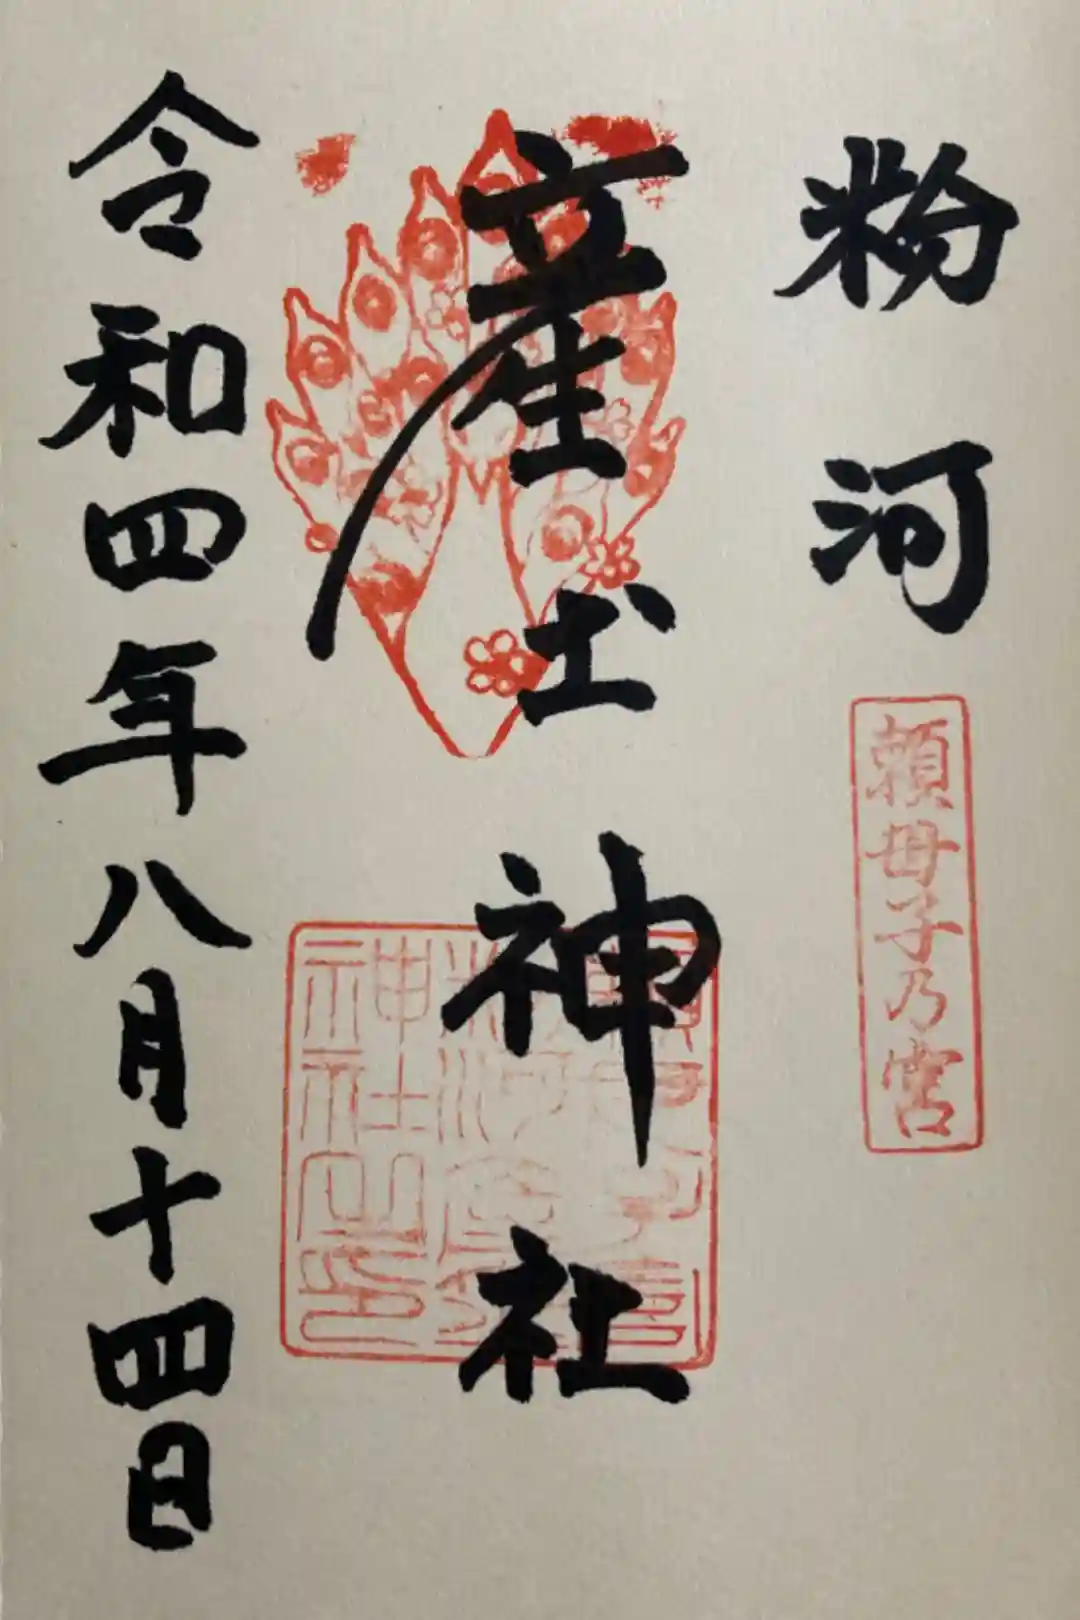 粉河
頼母子乃宮
産土神社
神社之印
令和四年八月十四日